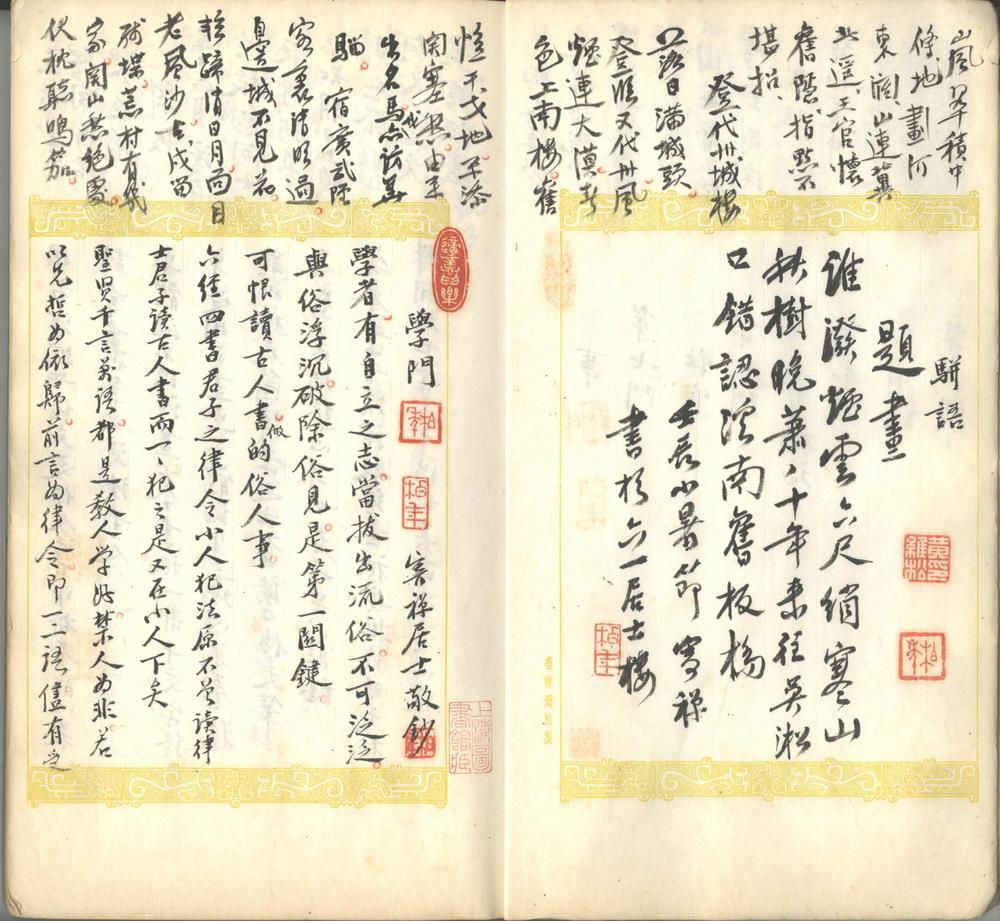 條地畫河
東關山連冀
北遥王官懷
舊隱指點不
堪招
登代州城樓
落日滿城頭
登臨又代州風
煙連大漠
色上南樓舊
駢語
題畫
誰潑煙雲六尺綃寒山
秋樹晚蕭〻十年來往吳淞
口錯認溪南舊板橋
壬辰小暑節寄禅
書於六一居士樓
黃
松
柏年
榮寶齋
惟干戈地平添
關塞愁由来
出名馬我亦訪
宿廣武
客裏清明過
邊城不見花
輪蹄消日月向
老風沙古戍留
殘堞荒村有幾
家關山愁絕處
伏枕聽鳴笳
學門
柏年
寄禅居士敬鈔
上海圖書館藏
學者有自立之志當拔出流俗不可泛泛
與俗浮沉破除俗見是第一關鍵
可恨讀古人書做的俗人事
六經四書君子之律令小人犯法原不曾讀律
士君子讀古人書而一〻犯之是又在小人下矣
聖賢千言萬語都是教人学好禁人為非若
以先哲為依歸前言為律令即一二語儘有受